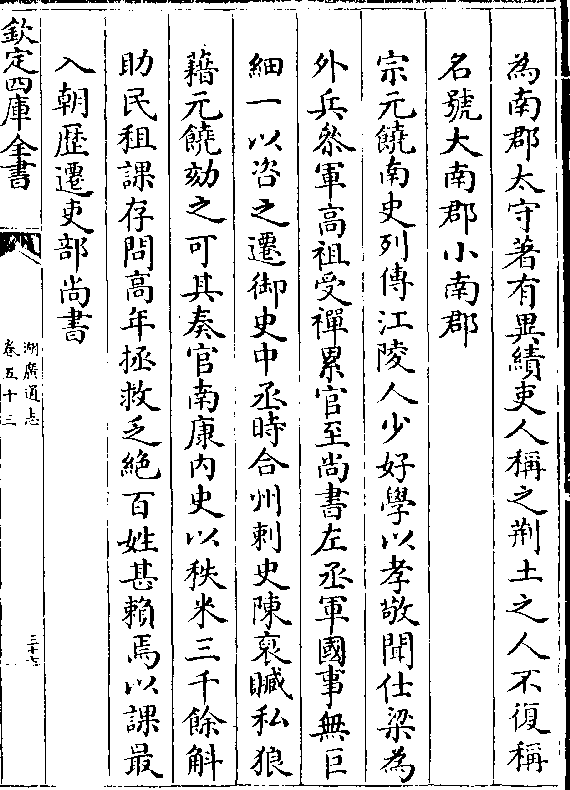 為南郡太守著有異績吏人稱之荆土之人不復稱
名號大南郡小南郡
宗元饒南史列傳江陵人少好學以孝敬聞仕梁為
外兵參軍高祖受禪累官至尚書左丞軍國事無巨
細一以咨之遷御史中丞時合州刺史陳裒贓私狼
藉元饒劾之可其奏官南康內史以秩米三千餘斛
助民租課存問高年拯救乏絶百姓甚賴焉以課最
入朝歴遷吏部尚書
欽定四庫全書
湖廣通志
卷五十三
三十六